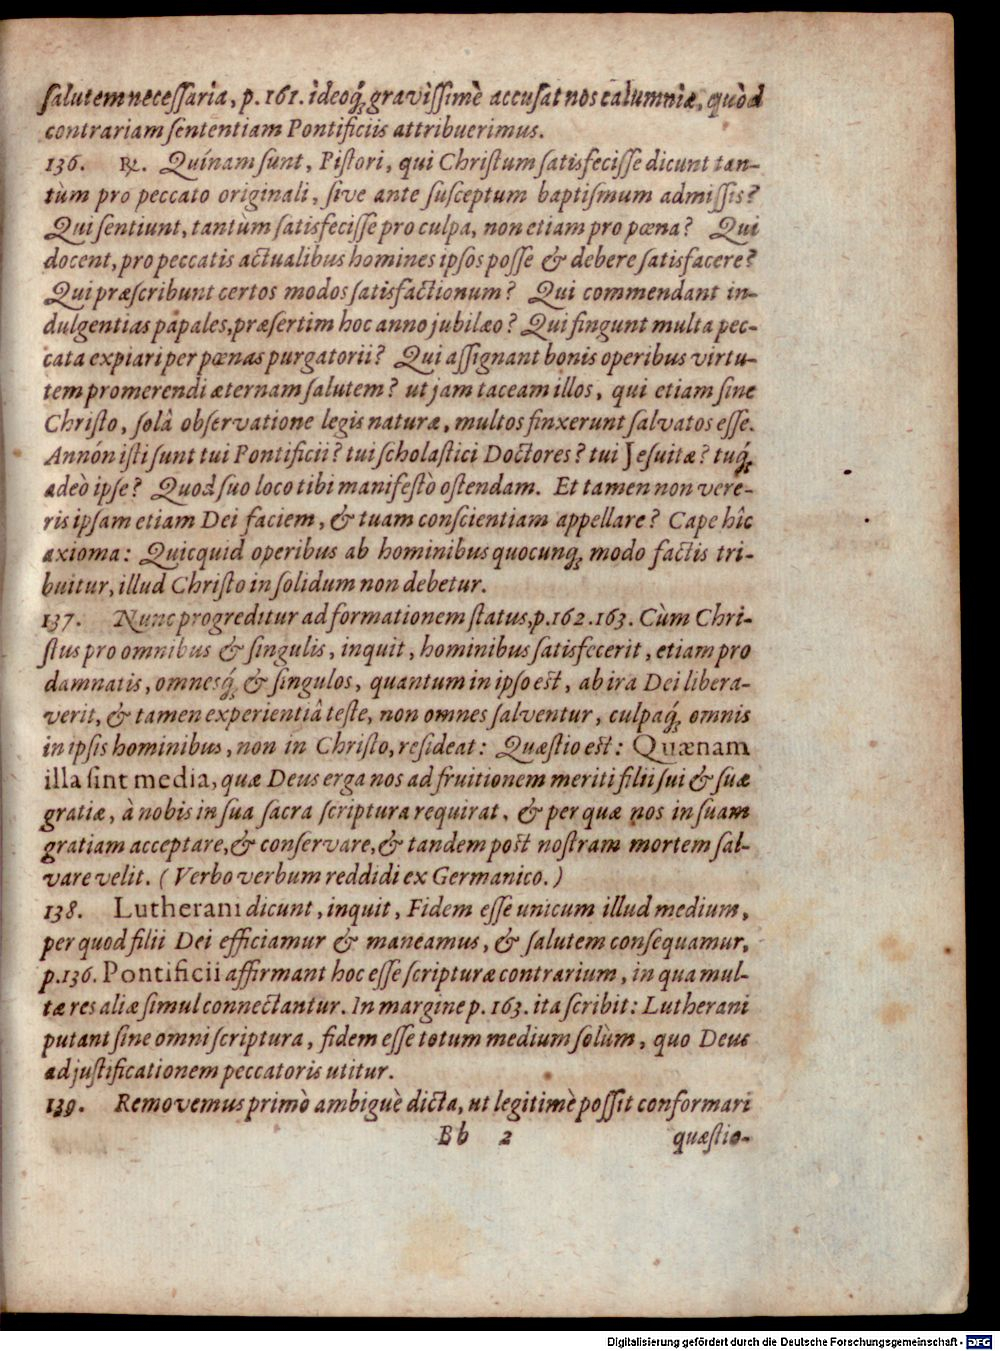 ſalutem neceſſaria, p. 161. ideoq́; gravìſſimè accuſat nos calumniæ, quòd
contrariam ſententiam Pontificiis attribuerimus.
136. ℞. Quínam ſunt, Piſtori, qui Chriſtum ſatisfeciſſe dicunt tan-
tùm pro peccato originali, ſive ante ſuſceptum baptiſmum admiſſis?
Qui ſentiunt, tantùm ſatisfeciſſe pro culpa, non etiam pro pœna? Qui
docent, pro peccatis actualibus homines ipſos poſſe & debere ſatisfacere?
Qui præſcribunt certos modos ſatisfactionum? Qui commendant in-
dulgentias papales, præſertim hoc anno jubilæo? Qui fingunt multa pec-
cata expiari per pœnas purgatorii? Qui aſſignant bonis operibus virtu-
tem promerendi æternam ſalutem? ut jam taceam illos, qui etiam ſine
Chriſto, ſolâ obſervatione legis naturæ, multos finxerunt ſalvatos eſſe.
Annón iſti ſunt tui Pontificii? tui ſcholaſtici Doctores? tui Jeſuitæ? tuq́;
adeò ipſe? Quod ſuo loco tibi manifeſtò oſtendam. Et tamen non vere-
ris ipſam etiam Dei faciem, & tuam conſcientiam appellare? Cape hîc
axioma: Quicquid operibus ab hominibus quocunq́; modo factis tri-
buitur, illud Chriſto in ſolidum non debetur.
137. Nunc progreditur ad formationem ſtatus, p. 162. 163. Cùm Chri-
ſtus pro omnibus & ſingulis, inquit, hominibus ſatisfecerit, etiam pro
damnatis, omnesq́; & ſingulos, quantum in ipſo eſt, ab ira Dei libera-
verit, & tamen experientiâ teſte, non omnes ſalventur, culpaq́; omnis
in ipſis hominibus, non in Chriſto, reſideat: Quæſtio eſt: Quænam
illa ſint media, quæ Deus erga nos ad fruitionem meriti filii ſui & ſuæ
gratiæ, à nobis in ſua ſacra ſcriptura requirat, & per quæ nos in ſuam
gratiam acceptare, & conſervare, & tandem poſt noſtram mortem ſal-
vare velit. (Verbo verbum reddidi ex Germanico.)
138. Lutherani dicunt, inquit, Fidem eſſe unicum illud medium,
per quod filii Dei efficiamur & maneamus, & ſalutem conſequamur,
p. 136. Pontificii affirmant hoc eſſe ſcripturæ contrarium, in qua mul-
tæ res aliæ ſimul connectantur. In margine p. 163. ita ſcribit: Lutherani
putant ſine omni ſcriptura, fidem eſſe totum medium ſolùm, quo Deus
ad juſtificationem peccatoris utitur.
139. Removemus primò ambiguè dicta, ut legitimè poſſit conformari
Bb 2 quæſtio-
Digitalisierung gefördert durch die Deutsche Forschungsgemeinschaft - DFG